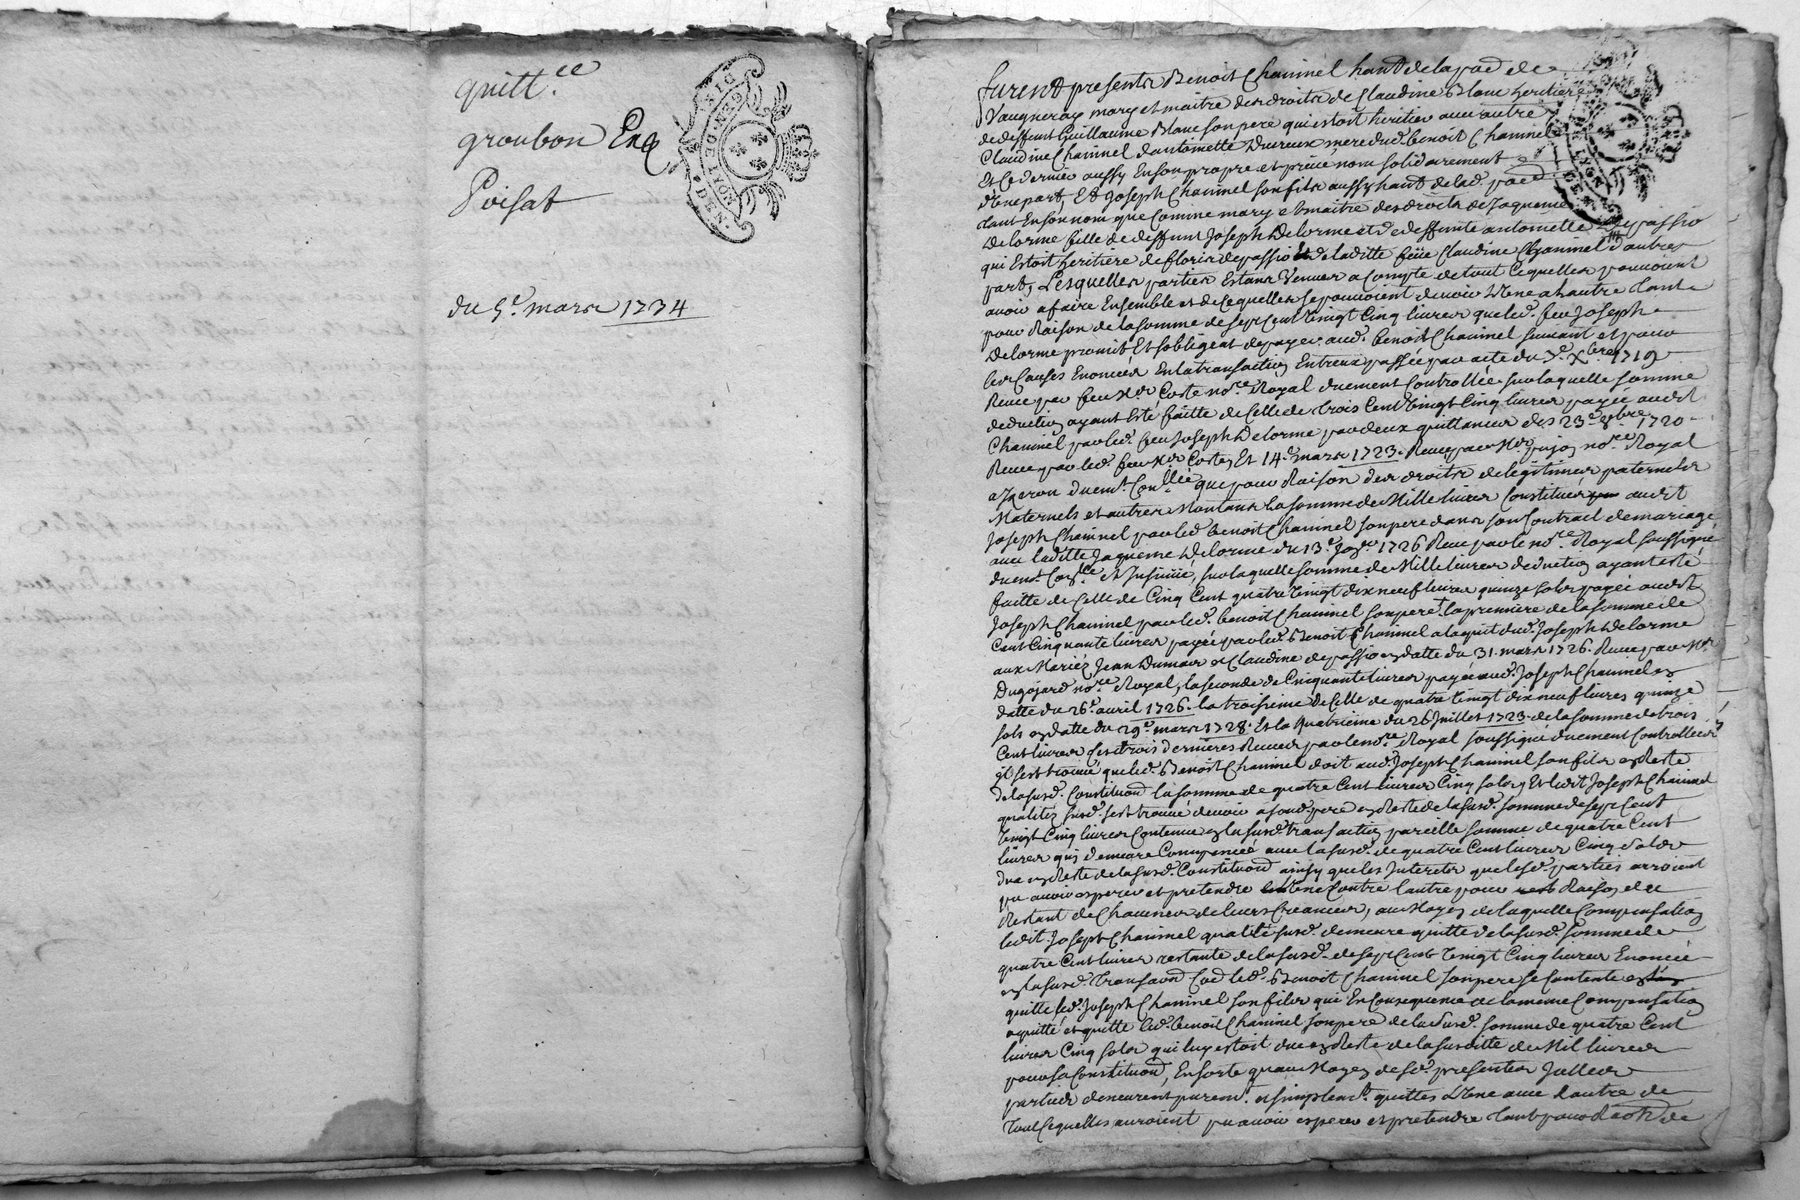 quitt.ce
groubon Et
Poisat
du 5e. mars 1734
GEN DE LYON
furent presents Benoit Chaninel hant de la par de
Vaugneray mary et maitre des droits de Claudine Blanc heritiere
de deffunt Guillaume Blanc son pere qui estoit heritier avec autre
Claudine Chaninel d'antoinette Dureux mere dud. benoit Chaninel
Et Ce dernier aussy En son propre et privé nom solidairement
d'Une part, Et Joseph Chaninel son fils aussy hant de lad. par
tant En son nom que Comme mary et maitre des droits de Jaqueme
Delorme fille de deffunt Joseph Delorme et de deffunte antoinette Depassio
qui Estoit heritiere de floris depassio Et de laditte feüe Claudine Chaninel d'autre
part, Lesquelles parties Estant Venues a Compte de tout Cequelles pouvoient
avoir a faire Ensemble et de Cequelles se pouvoient devoir L'Une a L'autre tant
pour Raison de la somme de sept Cent Vingt Cinq livres que led. feu Joseph
Delorme promit Et s'obligeat de payer aud. benoit Chaninel suivant et pour
les Causes Enoncées En la transaction Entreux passée par acte du 3e. Xbre 1719
Receue par feu Me Coste nore. Royal duement Controllée sur laquelle somme
deduction ayant Esté faitte de Celle de trois Cent Vingt Cinq livres payée audit
Chaninel par led. feu Joseph Delorme par deux quittances des 23e. 8bre 1720
Receue par led. feu Me Coste Et 14e. mars 1723. Receue par Me pujo nore Royal
a Yzeron duemt. Conllée que pour Raison des droits de legitimes paternels
Maternels et autres Montant la somme de Mille livres Constitués audit
Joseph Chaninel par led. benoit Chaninel son pere dans son Contract de mariage
avec laditte Jaqueme Delorme du 13e. 1726 Receu par le nore. Royal soussigné
duemt Conlle et Insinüé, sur laquelle somme de Mille livres deduction ayant esté
faitte de Celle de Cinq Cent quatre Vingt dix neuf livres quinze sols payée audit
Joseph Chaninel par led. benoit Chaninel son pere, la premiere de la somme de
Cent Cinquante livres payée par led. Benoit Chaninel a laquit dud. Joseph Delorme
aux Mariéz Jean Dumas et Claudine depassio en datte du 31. mars 1726. Receue par Me
Dugojard nore. Royal, la seconde de Cinquante livres payée aud. Joseph Chaninel en
datte du 26e. avril 1726. la troisieme de Celle de quatre Vingt dix neuf livres quinze
sols en datte du 29e. mars 1728. Et la quatrieme du 26 Juillet 1723. de la somme de trois
Cent livres les trois dernieres Receues par le nore. Royal soussigné duement Controllées
il s'est trouvé que led. Benoit Chaninel doit aud. Joseph Chaninel son fils en Reste
de la susd. Constituon la somme de quatre Cent livres Cinq sols Et ledit Joseph Chaninel
qualitez susd. s'est trouvé devoir a sond. pere en Reste de la susd. somme de sept Cent
Vingt Cinq livres Contenue en la susd. transaction pareille somme de quatre Cent
livres qui demeure Compensée avec la susd. de quatre Cent livres Cinq sols
due en Reste de la susd. Constituon ainsy que les Interets que lesd. parties auroient
pu avoir esperer et pretendre L'Une Contre L'autre pour Raison de
Restant de Chacunes de leurs Creances, au Moyen de laquelle Compensation
ledit Joseph Chaninel qualité susd. demeure quitte de la susd. somme de
quatre Cent livres restante de la susd. de sept Cent Vingt Cinq livres Enoncée
en la susd. transaon led. Benoit Chaninel son pere se Contente
quitte led. Joseph Chaninel son fils qui En Consequence de la meme Compensation
a quitté et quitte led. benoit Chaninel son pere de la susd. somme de quatre Cent
livres Cinq sols qui luy estoit due en Reste de la susditte de Mil livres
pour sa Constituon, En sorte qu'au Moyen de Cd. presentes
parties demeurent puremt. et simplemt. quittes L'Une avec L'autre de
tout Cequelles auroient pu avoir esperer et pretendre tant pour Reste de